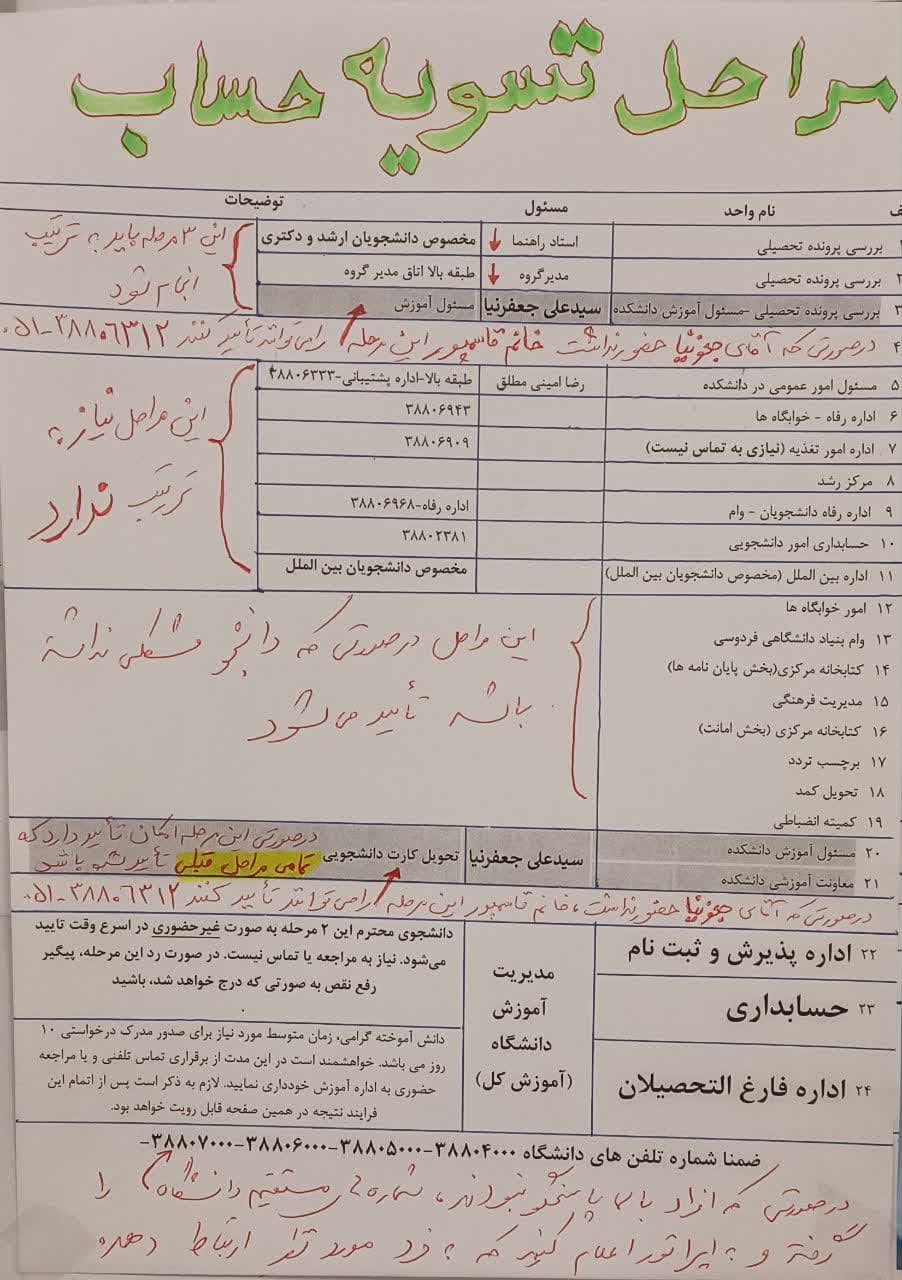 مراحل تسویه حساب
ف نام واحد مسئول توضیحات
۱ بررسی پرونده تحصیلی استاد راهنما مخصوص دانشجویان ارشد و دکتری
۲ بررسی پرونده تحصیلی مدیرگروه طبقه بالا اتاق مدیر گروه
۳ بررسی پرونده تحصیلی -مسئول آموزش دانشکده سیدعلی جعفرنیا مسئول آموزش
این ۳ مرحله باید به ترتیب
انجام شود
۴ درصورتی که آقای جعفرنیا حضور نداشت خانم قاسمپور این مرحله را می‌توانند تأیید کنند ۰۵۱-۳۸۸۰۶۳۱۲
۵ مسئول امور عمومی در دانشکده رضا امینی مطلق طبقه بالا-اداره پشتیبانی-۳۸۸۰۶۳۳۳
۶ اداره رفاه - خوابگاه ها ۳۸۸۰۶۹۴۳
۷ اداره امور تغذیه (نیازی به تماس نیست) ۳۸۸۰۶۹۰۹
۸ مرکز رشد
۹ اداره رفاه دانشجویان - وام اداره رفاه-۳۸۸۰۶۹۶۸
۱۰ حسابداری امور دانشجویی ۳۸۸۰۲۳۸۱
۱۱ اداره بین الملل (مخصوص دانشجویان بین الملل) مخصوص دانشجویان بین الملل
این مراحل نیاز به
ترتیب ندارد
۱۲ امور خوابگاه ها
۱۳ وام بنیاد دانشگاهی فردوسی
۱۴ کتابخانه مرکزی(بخش پایان نامه ها)
۱۵ مدیریت فرهنگی
۱۶ کتابخانه مرکزی (بخش امانت)
۱۷ برچسب تردد
۱۸ تحویل کمد
۱۹ کمیته انضباطی
این مراحل درصورتی که دانشجو مشکلی نداشته
باشد تأیید می‌شود
۲۰ مسئول آموزش دانشکده
۲۱ معاونت آموزشی دانشکده
سیدعلی جعفرنیا تحویل کارت دانشجویی
درصورتی این مرحله امکان تأیید دارد که
تمامی مراحل قبلی تأیید شده باشد
درصورتی که آقای جعفرنیا حضور نداشت، خانم قاسمپور این مرحله را می‌توانند تأیید کنند ۰۵۱-۳۸۸۰۶۳۱۲
۲۲ اداره پذیرش و ثبت نام
۲۳ حسابداری
۲۴ اداره فارغ التحصیلان
مدیریت
آموزش
دانشگاه
(آموزش کل)
دانشجوی محترم این ۲ مرحله به صورت غیرحضوری در اسرع وقت تایید
می‌شود. نیاز به مراجعه یا تماس نیست. در صورت رد این مرحله، پیگیر
رفع نقص به صورتی که درج خواهد شد، باشید
دانش آموخته گرامی، زمان متوسط مورد نیاز برای صدور مدرک درخواستی ۱۰
روز می باشد. خواهشمند است در این مدت از برقراری تماس تلفنی و یا مراجعه
حضوری به اداره آموزش خودداری نمایید. لازم به ذکر است پس از اتمام این
فرایند نتیجه در همین صفحه قابل رویت خواهد بود.
ضمنا شماره تلفن های دانشگاه ۳۸۸۰۴۰۰۰-۳۸۸۰۵۰۰۰-۳۸۸۰۶۰۰۰-۳۸۸۰۷۰۰۰-
درصورتی که افراد بالا پاسخگو نبودند، شماره‌های مستقیم دانشگاه را
گرفته و به اپراتور اعلام کنید که به فرد مورد نظر ارتباط دهد